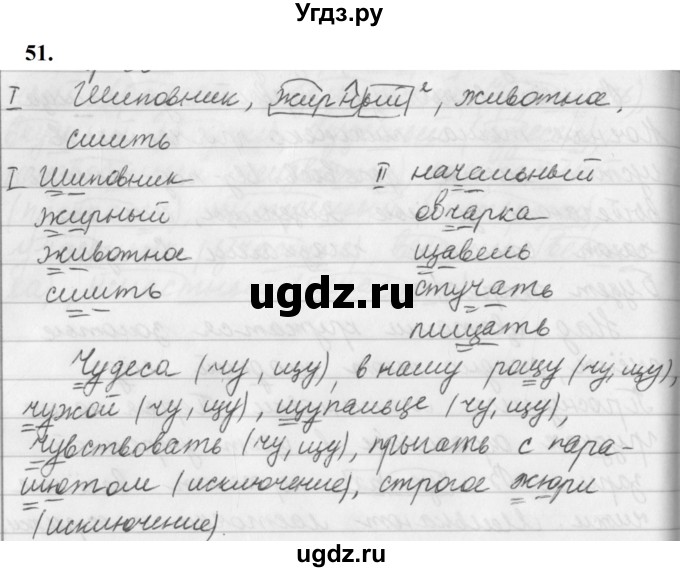 Угдз.ру
51.
I Шиповник, жирный², животное,
сшить
I Шиповник II начальный
жирный овчарка
животное щавель
сшить стучать
пищать
ugdz.ru
Чудеса (чу, щу), в нашу рощу (чу, щу),
чужой (чу, щу), щупальце (чу, щу),
чувствовать (чу, щу), прыгать с пара-
шютом (исключение), строгое жюри
(исключение).
ugdz.ru